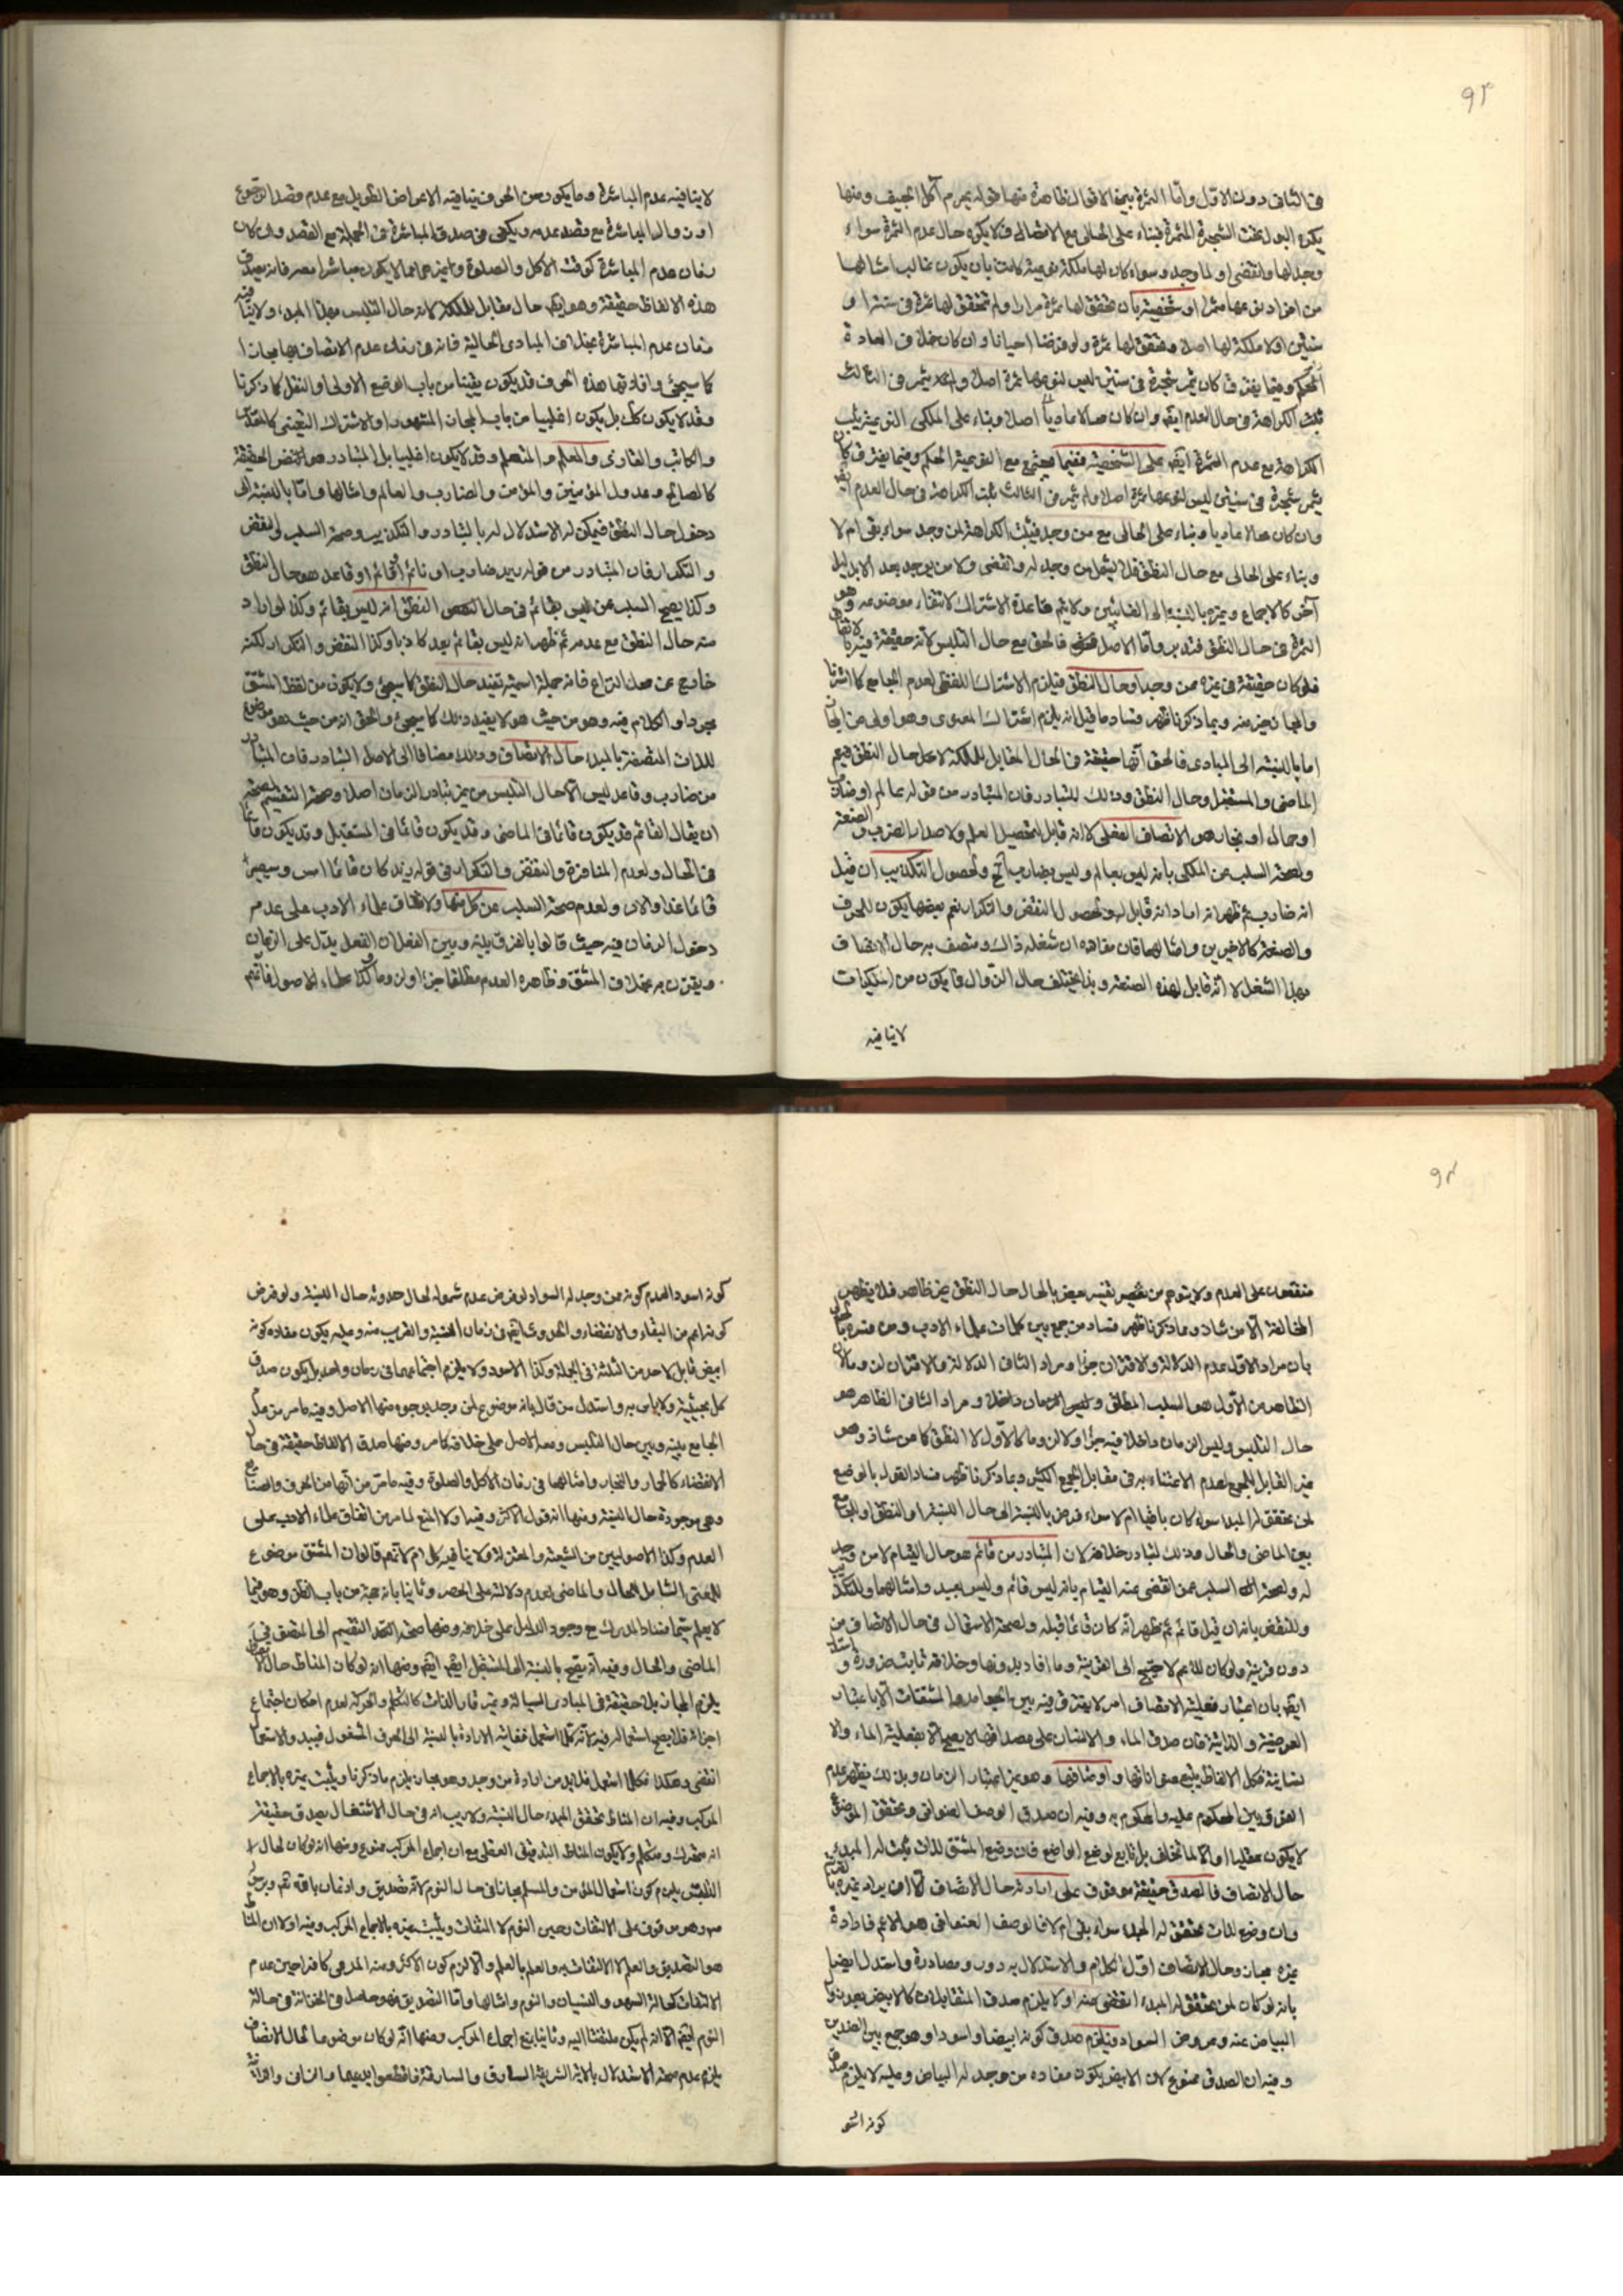 ٩٢
في الثاني دون الاول واما الثمرة ببقية الاقوال فظاهرة منها قوله يحرم اكل الجيف ومنها
يكره البول تحت الشجرة المثمرة فبناء على الحالي مع الاتصالي فلا يكره حال عدم الثمرة سواء
وجد لها وانقضى او لما يوجد وسواء كان لها ملكة نوعية كانت بان يكون غالب امثالها
من افراد نوعها مثمرا او شخصية بان تحقق لها ثمرة مرارا ولم تتحقق لها ثمرة في سنة او
سنتين او لا ملكة لها اصلا وتحقق لها ثمرة ولو فرضنا احيانا وان كان خلاف العادة
ثبت الكراهة في حال العدم ايضا وان كان محالا عاديا اصلا وبناء على الملكي
الكراهة مع عدم الثمرة ايضا على الشخصية ففيما يجتمع مع النوعية الحكم وفيما يفترف كان
يثمر شجرة في سنتين ليس لنوعها ثمرة اصلا ولم يثمر في الثالث ثبت الكراهة في حال العدم ايضا
وان كان محالا عاديا وبناء على الحالي مع من وجد فيثبت الكراهة لمن وجد سواء بقي ام لا
وبناء على الحالي مع حال النطق فلا يشمل من وجد له وانقضى ولا من يوجد بعد الا بدليل
آخر كالاجماع وغيره بالنسبة الى الغائبين ولا يتم قاعدة الاشتراك لانتفاء موضوعه وهو
الثمرة في حال النطق فتدبر واما الاصل فالحق مع حال التلبس لانه حقيقة فيه لاتفاق
فلو كان حقيقة في غيره ممن وجد او حال النطق فيلزم الاشتراك اللفظي لعدم الجامع كما اشرنا
والمجاز خير منه وبما ذكرنا ظهر فساد ما قيل انه يلزم اشتراك المعنوى وهو اولى من المجاز
اما بالنسبة الى المبادى فالحق انها حقيقة في الحال المقابل للملكة لا حال النطق فيعم
الماضي والمستقبل وحال النطق وذلك للتبادر فان المتبادر من قوله عالم او ضارب
او حمال او نجار هو الاتصاف الفعلي لا انه قابل لتحصيل العلم ولاصدار الضرب والصنعة
ولصحة السلب عن الملكي بانه ليس بعالم وليس بضارب الخ ولحصول التكذيب ان قيل
انه ضارب ثم ظهر انه اراد انه قابل له ولحصول النقض والتكرار نعم بعضها يكون للحرف
والصنعة كالاخيرين وامثالهما فان مفاده ان شغله ذاك ومتصف به حال الاتصاف
بهذا الشغل لا انه قابل لهذه الصنعة وبذا يختلف حال الزوال فما يكون من الملكات
لا ينافيه
لا ينافيه عدم المباشرة وما يكون من الحرف ينافيه الاعراض الطويل مع عدم قصد الرجوع
او زوال المباشرة مع قصد عدمه ويكفي في صدقه المباشرة في الجملة مع القصد وان كان
زمان عدم المباشرة كوقت الاكل والصلوة وغيرهما مما لا يكون مباشرا معه فانه يصدق
هذه الالفاظ حقيقة وهو ايضا حال مقابل للملكة لانه حال التلبس بهذا المبدء ولا ينافيه
زمان عدم المباشرة بخلاف المبادى الحالية فانه في زمان عدم الاتصاف بها مجاز
كما سيجئ وافادتها هذه الحرف قد يكون يقينا من باب الوضع الاولى او النقل كما ذكرنا
وقد لا يكون كك بل يكون اغلبيا من باب المجاز المشهور او الاشتراك التعيني كالمقدس
والكاتب والقارى والمعلم والمتعلم وقد لا يكون اغلبيا بل المتبادر هو المحض الحقيقة
كالصائم وعدول المؤمنين والمؤمن والضارب والعالم وامثالها واما بالنسبة الى
دخول حال النطق فيمكن له الاستدلال له بالتبادر والتكذيب وصحة السلب والنقض
والتكرار فان المتبادر من قوله زيد ضارب او نائم او قائم او قاعد هو حال النطق
وكذا يصح السلب عمن ليس بقائم في حال النطق انه ليس بقائم وكذا لو اراد
منه حال النطق مع عدمه ثم ظهر انه ليس بقائم يعد كاذبا وكذا النقض والتكرار لكنه
خارج عن محل النزاع فانه جملة اسمية تفيد حال النطق كما سيجئ ولا يكون من لفظ المشتق
مجردا والكلام فيه وهو من حيث هو لا يفيد ذلك كما سيجئ والحق انه من حيث هو موضوع
للذات المتصفة بالمبدء حال الاتصاف وذلك مضافا الى الاصل التبادر فان المتبادر
من ضارب وقاعد ليس الا حال التلبس من غير تبادر الزمان اصلا وصحة التقسيم لصحة
ان يقال القائم قد يكون قائما في الماضي وقد يكون قائما في المستقبل وقد يكون قائما
في الحال ولعدم المنافرة والنقض والتكرار في قوله زيد كان قائما امس وسيصير
قائما غدا والان ولعدم صحة السلب عن كل منها ولاتفاق علماء الادب على عدم
دخول الزمان فيه حيث قالوا بالفرق بينه وبين الفعل ان الفعل يدل على الزمان
ويقترن به بخلاف المشتق وظاهره العدم مطلقا جزءا ولزوما وكذا علماء الاصول فانهم
٩٣
متفقون على العدم ولا يتوهم من تفسير بعض بالحال حال النطق غير ظاهر فلا يظهر
المخالفة الا من شاذ وبما ذكرنا ظهر فساد من جمع بين كلمات علماء الادب ومن فسره بالحال
بان مراد الاول عدم الدلالة والاقتران جزءا ومراد الثاني الدلالة والاقتران لزوما لان
الظاهر من الاول هو السلب المطلق وليس الزمان داخلا ومراد الثاني الظاهر هو
حال التلبس وليس الزمان داخلا فيه جزءا ولا لزوما كالاول لا النطق كما من شاذ وهو
غير القابل للجمع لعدم الاعتناء به في مقابل الجمع الكثير وبما ذكرنا ظهر فساد القول بالوضع
لمن تحقق له المبدا سواء كان باقيا ام لا سواء فرض بالنسبة الى حال النسبة او النطق او الجامع
بين الماضي والحال وذلك لتبادر خلافه لان المتبادر من قائم هو حال القيام لا من وجد
له ولصحة السلب عمن انقضى عنه القيام بانه ليس قائم وليس بعبد وامثالهما وللتكذيب
وللنقض بانه ان قيل قائم ثم ظهر انه كان قائما قبله ولصحة الاستعمال في حال الاتصاف من
دون قرينة ولو كان للاعم لاحتيج الى القرينة وما افاد بدونها وخلافه ثابت ضرورة واستدل
ايضا بان اعتبار فعلية الاتصاف امر لا يفترق فيه بين الجوامد والمشتقات الا باعتبار
العرضية والذاتية فان صدق الماء والانسان على مصداقهما لا يصح الا بفعلية الماء والا
نسانية فكل الالفاظ يتبع عنواناتها واوصافها وهو غير اعتبار الزمان وبذلك يظهر عدم
الفرق بين المحكوم عليه والمحكوم به وفيه ان صدق الوصف العنواني وتحقق الموضوع
لا يكون عقليا والا لما تخلف بل تابع لوضع الواضع فان وضع المشتق لذات ثبت له المبدء
حال الاتصاف فالصدق حقيقة موقوف على ارادة حال الاتصاف الا ان يراد غيره بالقرينة
وان وضع لذات تحقق له المبدء سواء بقي ام لا فالوصف العنواني هو الاعم فارادة
غيره مجاز وحال الاتصاف اول الكلام والاستدلال به دور ومصادرة واستدل ايضا
بانه لو كان لمن تحقق له المبدء انقضى منه او لا يلزم صدق المتقابلات كالابيض بعد زوال
البياض عنه وعروض السواد فيلزم صدق كونه ابيضا واسودا وهو جمع بين الضدين
وفيه ان الصدق ممنوع لان الابيض يكون مفاده من وجد له البياض وعليه لا يلزم صدق
كونه اسو
كونه اسود لعدم كونه ممن وجد له السواد لو فرض عدم شموله لحال حدوثه حال النسبة ولو فرض
كونه اعم من البقاء والانقضاء والحدوث ايضا في زمان النسبة والقريب منه وعليه يكون مفاده كونه
ابيض قابل لاحد من الثلثة في الجملة وكذا الاسود ولا يلزم اجتماعهما في زمان واحد بل يكون صدق
كل بحيثية ولا باس به واستدل من قال بانه موضوع لمن وجد بوجوه منها الاصل وفيه ما مر من عدم
الجامع بينه وبين حال التلبس ومعه الاصل على خلافه كما مر ومنها صدق الالفاظ حقيقة في حال
الانقضاء كالخباز والنجار وامثالهما في زمان الاكل والصلوة وفيه ما مر من انها من الحرف والصنايع
وهي موجودة حال النسبة ومنها انه قول الاكثر وفيه اولا المنع لما مر من اتفاق علماء الادب على
العدم وكذا الاصوليين من الشيعة والمعتزلة ولا ينافيه كلامهم لانهم قالوا ان المشتق موضوع
للمعنى الشامل للحال والماضي لعدم دلالته على الحصر وثانيا بانه حجة من باب الظن وهو فيما
لا يعلم سيما مناط المدرك مع وجود الدليل على خلافه ومنها صحة التقسيم الى المتصف في
الماضي والحال وفيه انه يصح بالنسبة الى المستقبل ايضا ومنها انه لو كان المناط حال الاتصاف
يلزم المجاز بلا حقيقة في المبادى السيالة وغير قار الذات كالتكلم والحركة لعدم امكان اجتماع
انقضى وهكذا فكلما استعمل فلابد من ارادة من وجد وهو مجاز يلزم ما ذكرنا ويثبت غيره بالاجماع
المركب وفيه ان المناط تحقق المبدء حال النسبة ولا ريب انه في حال الاشتغال يصدق حقيقة
انه متحرك ومتكلم ولا يكون المناط التدقيق العقلي مع ان اجماع المركب ممنوع ومنها انه لو كان لحال
التلبس يلزم كون استعمال المؤمن والمسلم مجازا في حال النوم لانه تصديق واذعان بالله
وهو موقوف على الالتفات وحين النوم لا التفات ويثبت غيره بالاجماع المركب وفيه اولا ان المناط
هو التصديق والعلم لا الالتفات به والعلم بالعلم والا لزم كون الاكثر ومنه المدعى كافرا حين عدم
الالتفات كحالة السهو والنسيان والنوم وامثالها واما التصديق فهو حاصل في الخزانة في حالة
النوم ايضا الا انه لم يكن ملتفتا اليه وثانيا بمنع اجماع المركب ومنها انه لو كان موضوعا لحال الاتصاف
يلزم عدم صحة الاستدلال بالاية الشريفة السارق والسارقة فاقطعوا ايديهما والزاني والزانية